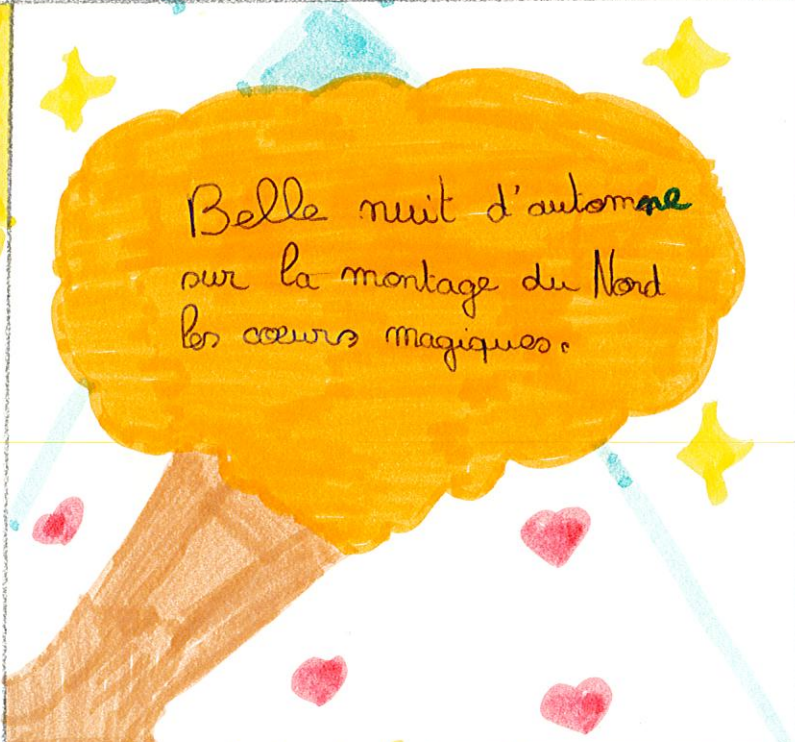 Belle nuit d'automne
sur la montage du Nord
les cœurs magiques.